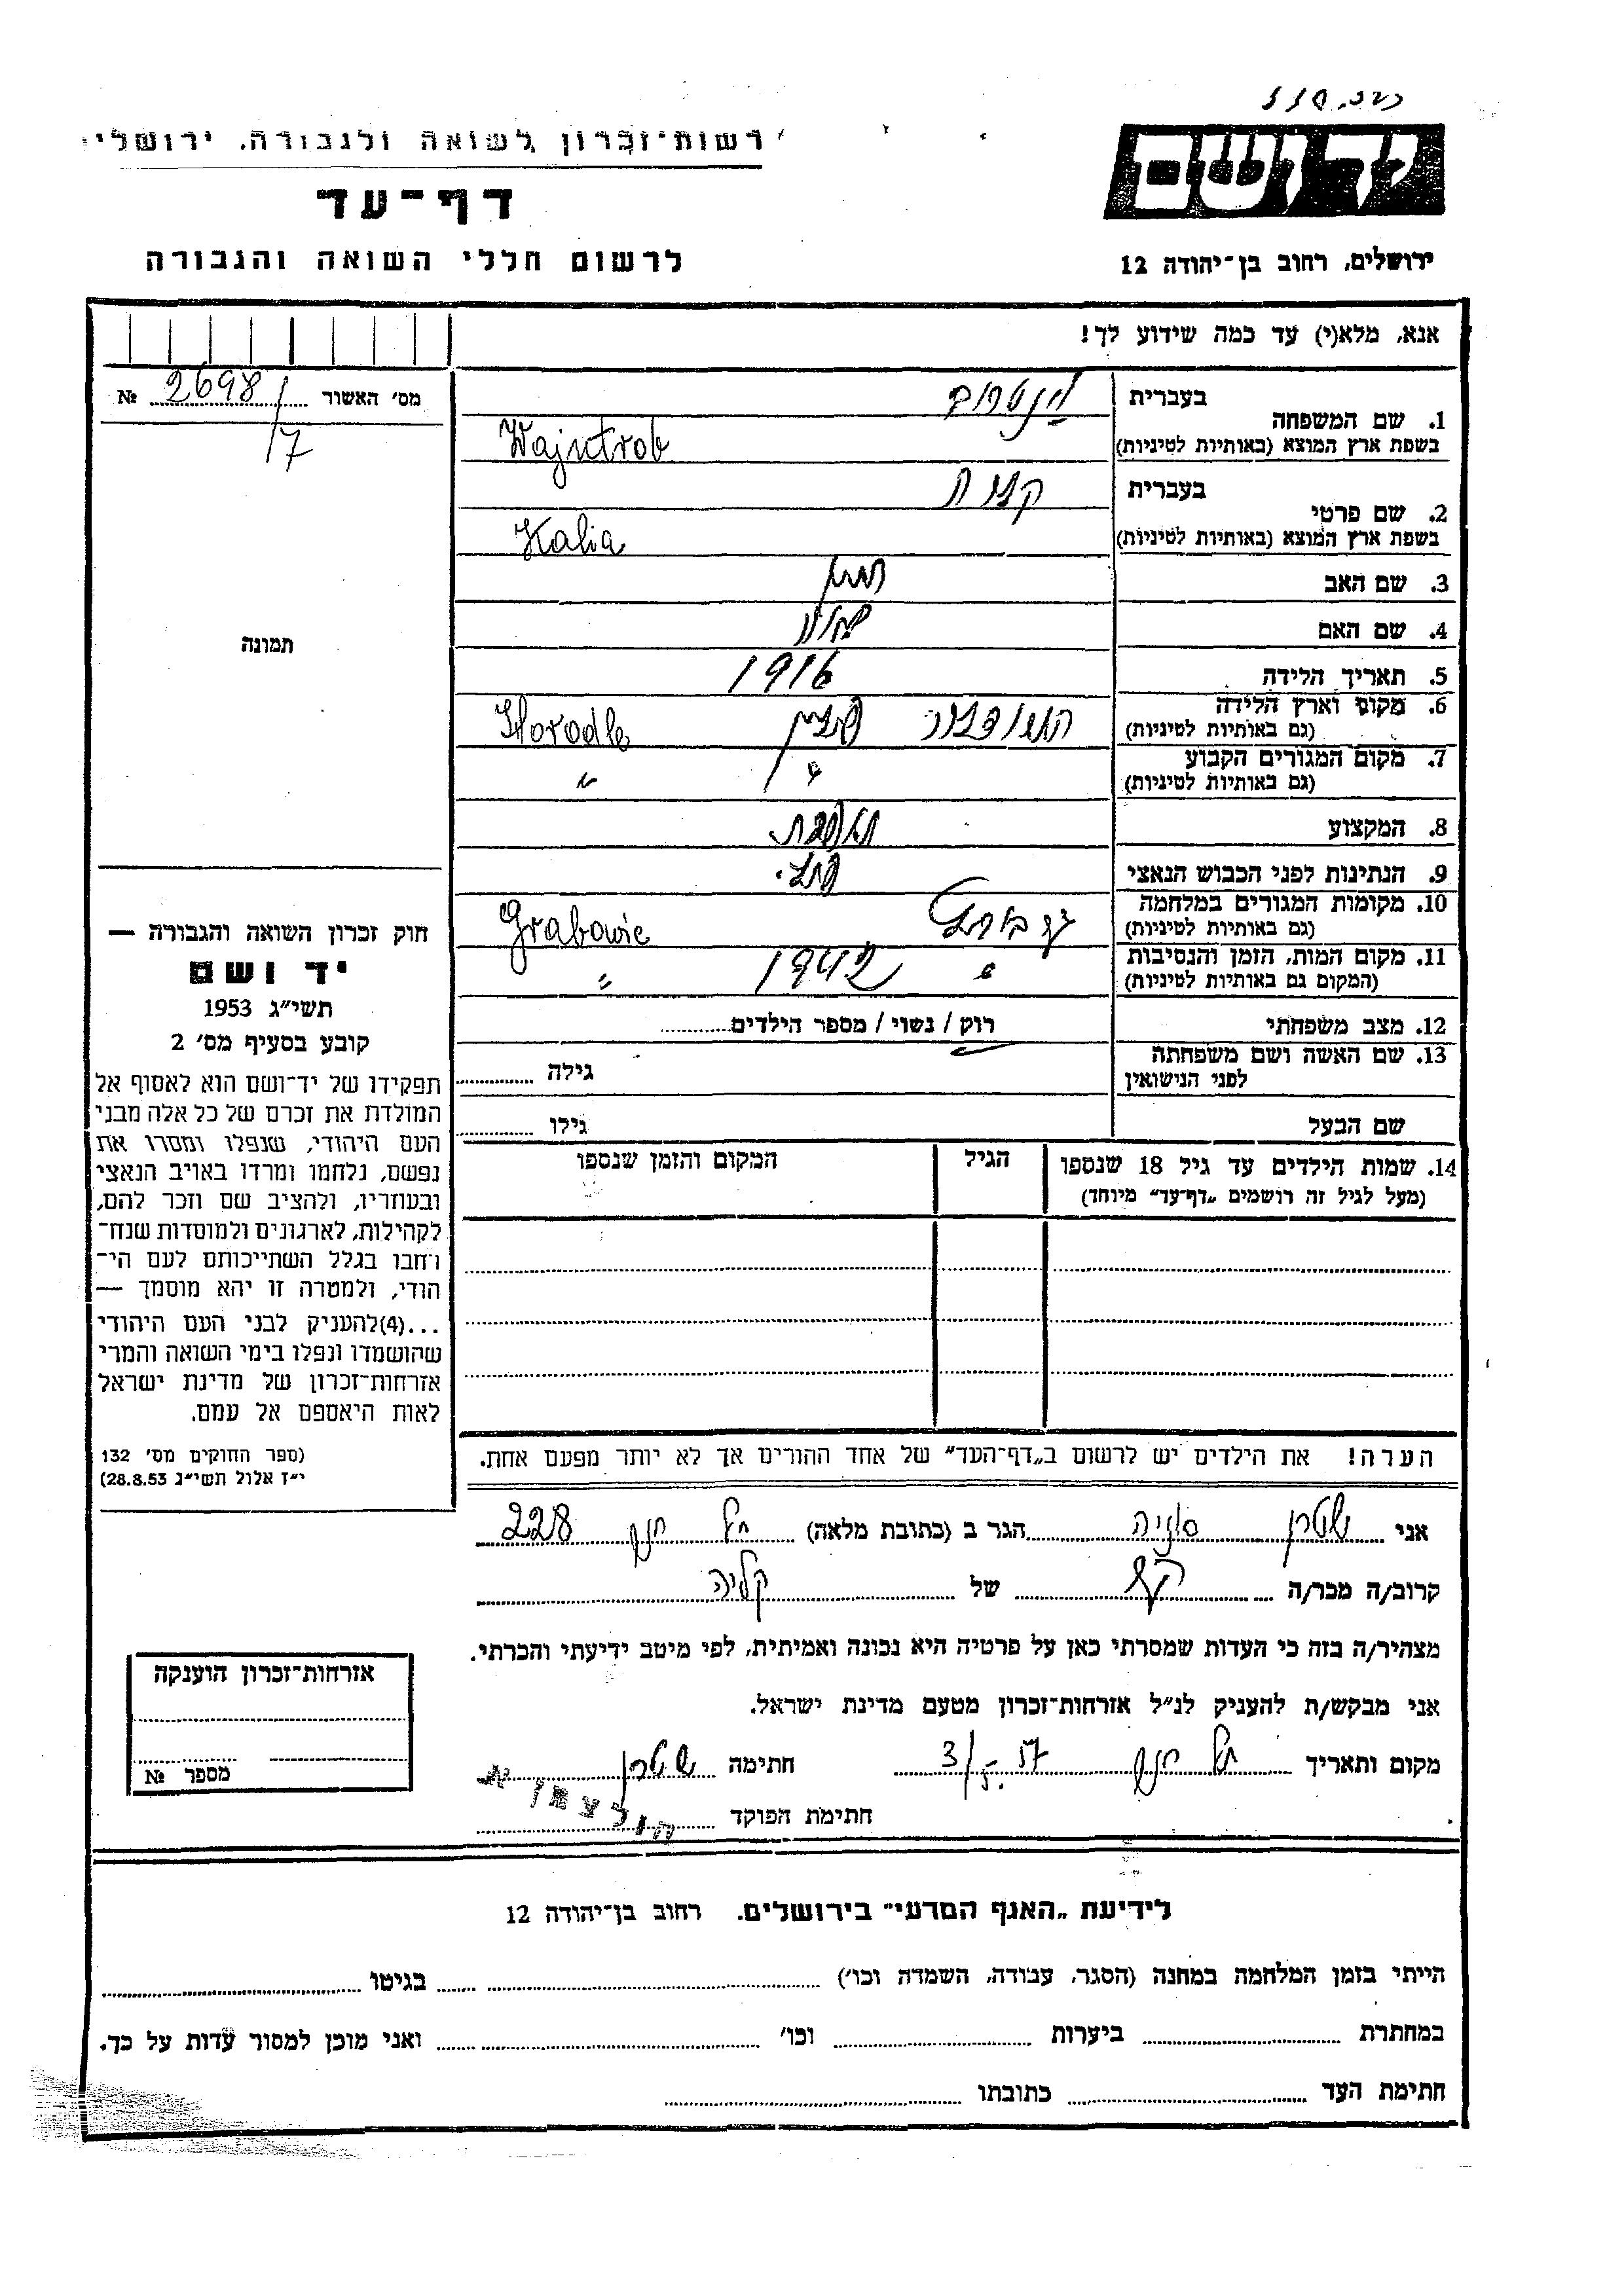 רשות־זכרון לשואה ולגבורה, ירושלים
דף־עד
לרשום חללי השואה והגבורה
ידושם
ירושלים, רחוב בן־יהודה 12
אנא, מלא(י) עד כמה שידוע לך!
מס׳ האשור № 2698/7
תמונה
1. שם המשפחה בעברית וינטרוב
בשפת ארץ המוצא (באותיות לטיניות) Wajntrob
2. שם פרטי בעברית
בשפת ארץ המוצא (באותיות לטיניות) Kalia
3. שם האב
4. שם האם
5. תאריך הלידה 1916
6. מקום וארץ הלידה פולין Horodle
(גם באותיות לטיניות)
7. מקום המגורים הקבוע " "
(גם באותיות לטיניות)
8. המקצוע
9. הנתינות לפני הכבוש הנאצי פול.
10. מקומות המגורים במלחמה Grabowie
(גם באותיות לטיניות)
11. מקום המות, הזמן והנסיבות " 1942 "
(המקום גם באותיות לטיניות)
12. מצב משפחתי רוק / נשוי / מספר הילדים
13. שם האשה ושם משפחתה
לפני הנישואין גילה
שם הבעל גילו
14. שמות הילדים עד גיל 18 שנספו הגיל המקום והזמן שנספו
(מעל לגיל זה רושמים „דף־עד״ מיוחד)
הערה! את הילדים יש לרשום ב„דף־העד״ של אחד ההורים אך לא יותר מפעם אחת.
חוק זכרון השואה והגבורה —
יד ושם
תשי״ג 1953
קובע בסעיף מס׳ 2
תפקידו של יד־ושם הוא לאסוף אל
המולדת את זכרם של כל אלה מבני
העם היהודי, שנפלו ומסרו את
נפשם, נלחמו ומרדו באויב הנאצי
ובעוזריו, ולהציב שם וזכר להם,
לקהילות, לארגונים ולמוסדות שנח־
רבו בגלל השתייכותם לעם הי־
הודי, ולמטרה זו יהא מוסמך —
...(4)להעניק לבני העם היהודי
שהושמדו ונפלו בימי השואה והמרי
אזרחות־זכרון של מדינת ישראל
לאות היאספם אל עמם.
(ספר החוקים מס׳ 132
י״ז אלול תשי״ג 28.8.53)
אני שטרן סוניה הגר ב (כתובת מלאה) תל חנן 228
קרוב/ה מכר/ה של קליה
מצהיר/ה בזה כי העדות שמסרתי כאן על פרטיה היא נכונה ואמיתית, לפי מיטב ידיעתי והכרתי.
אני מבקש/ת להעניק לנ״ל אזרחות־זכרון מטעם מדינת ישראל.
מקום ותאריך תל חנן 3/5.57 חתימה שטרן
חתימת הפוקד
אזרחות־זכרון הוענקה
מספר №
לידיעת „האגף המדעי״ בירושלים, רחוב בן־יהודה 12
הייתי בזמן המלחמה במחנה (הסגר, עבודה, השמדה וכו׳) בגיטו
במחתרת ביערות וכו׳ ואני מוכן למסור עדות על כך.
חתימת העד כתובתו